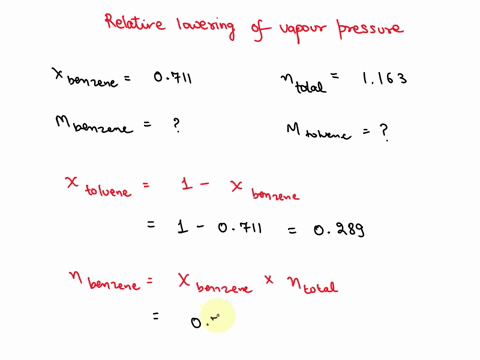 Relative lowering of vapour pressure
X benzene = 0.711 n total = 1.163
M benzene = ? M toluene = ?
X toluene = 1 - X benzene
= 1 - 0.711 = 0.289
n benzene = X benzene × n total
= 0.